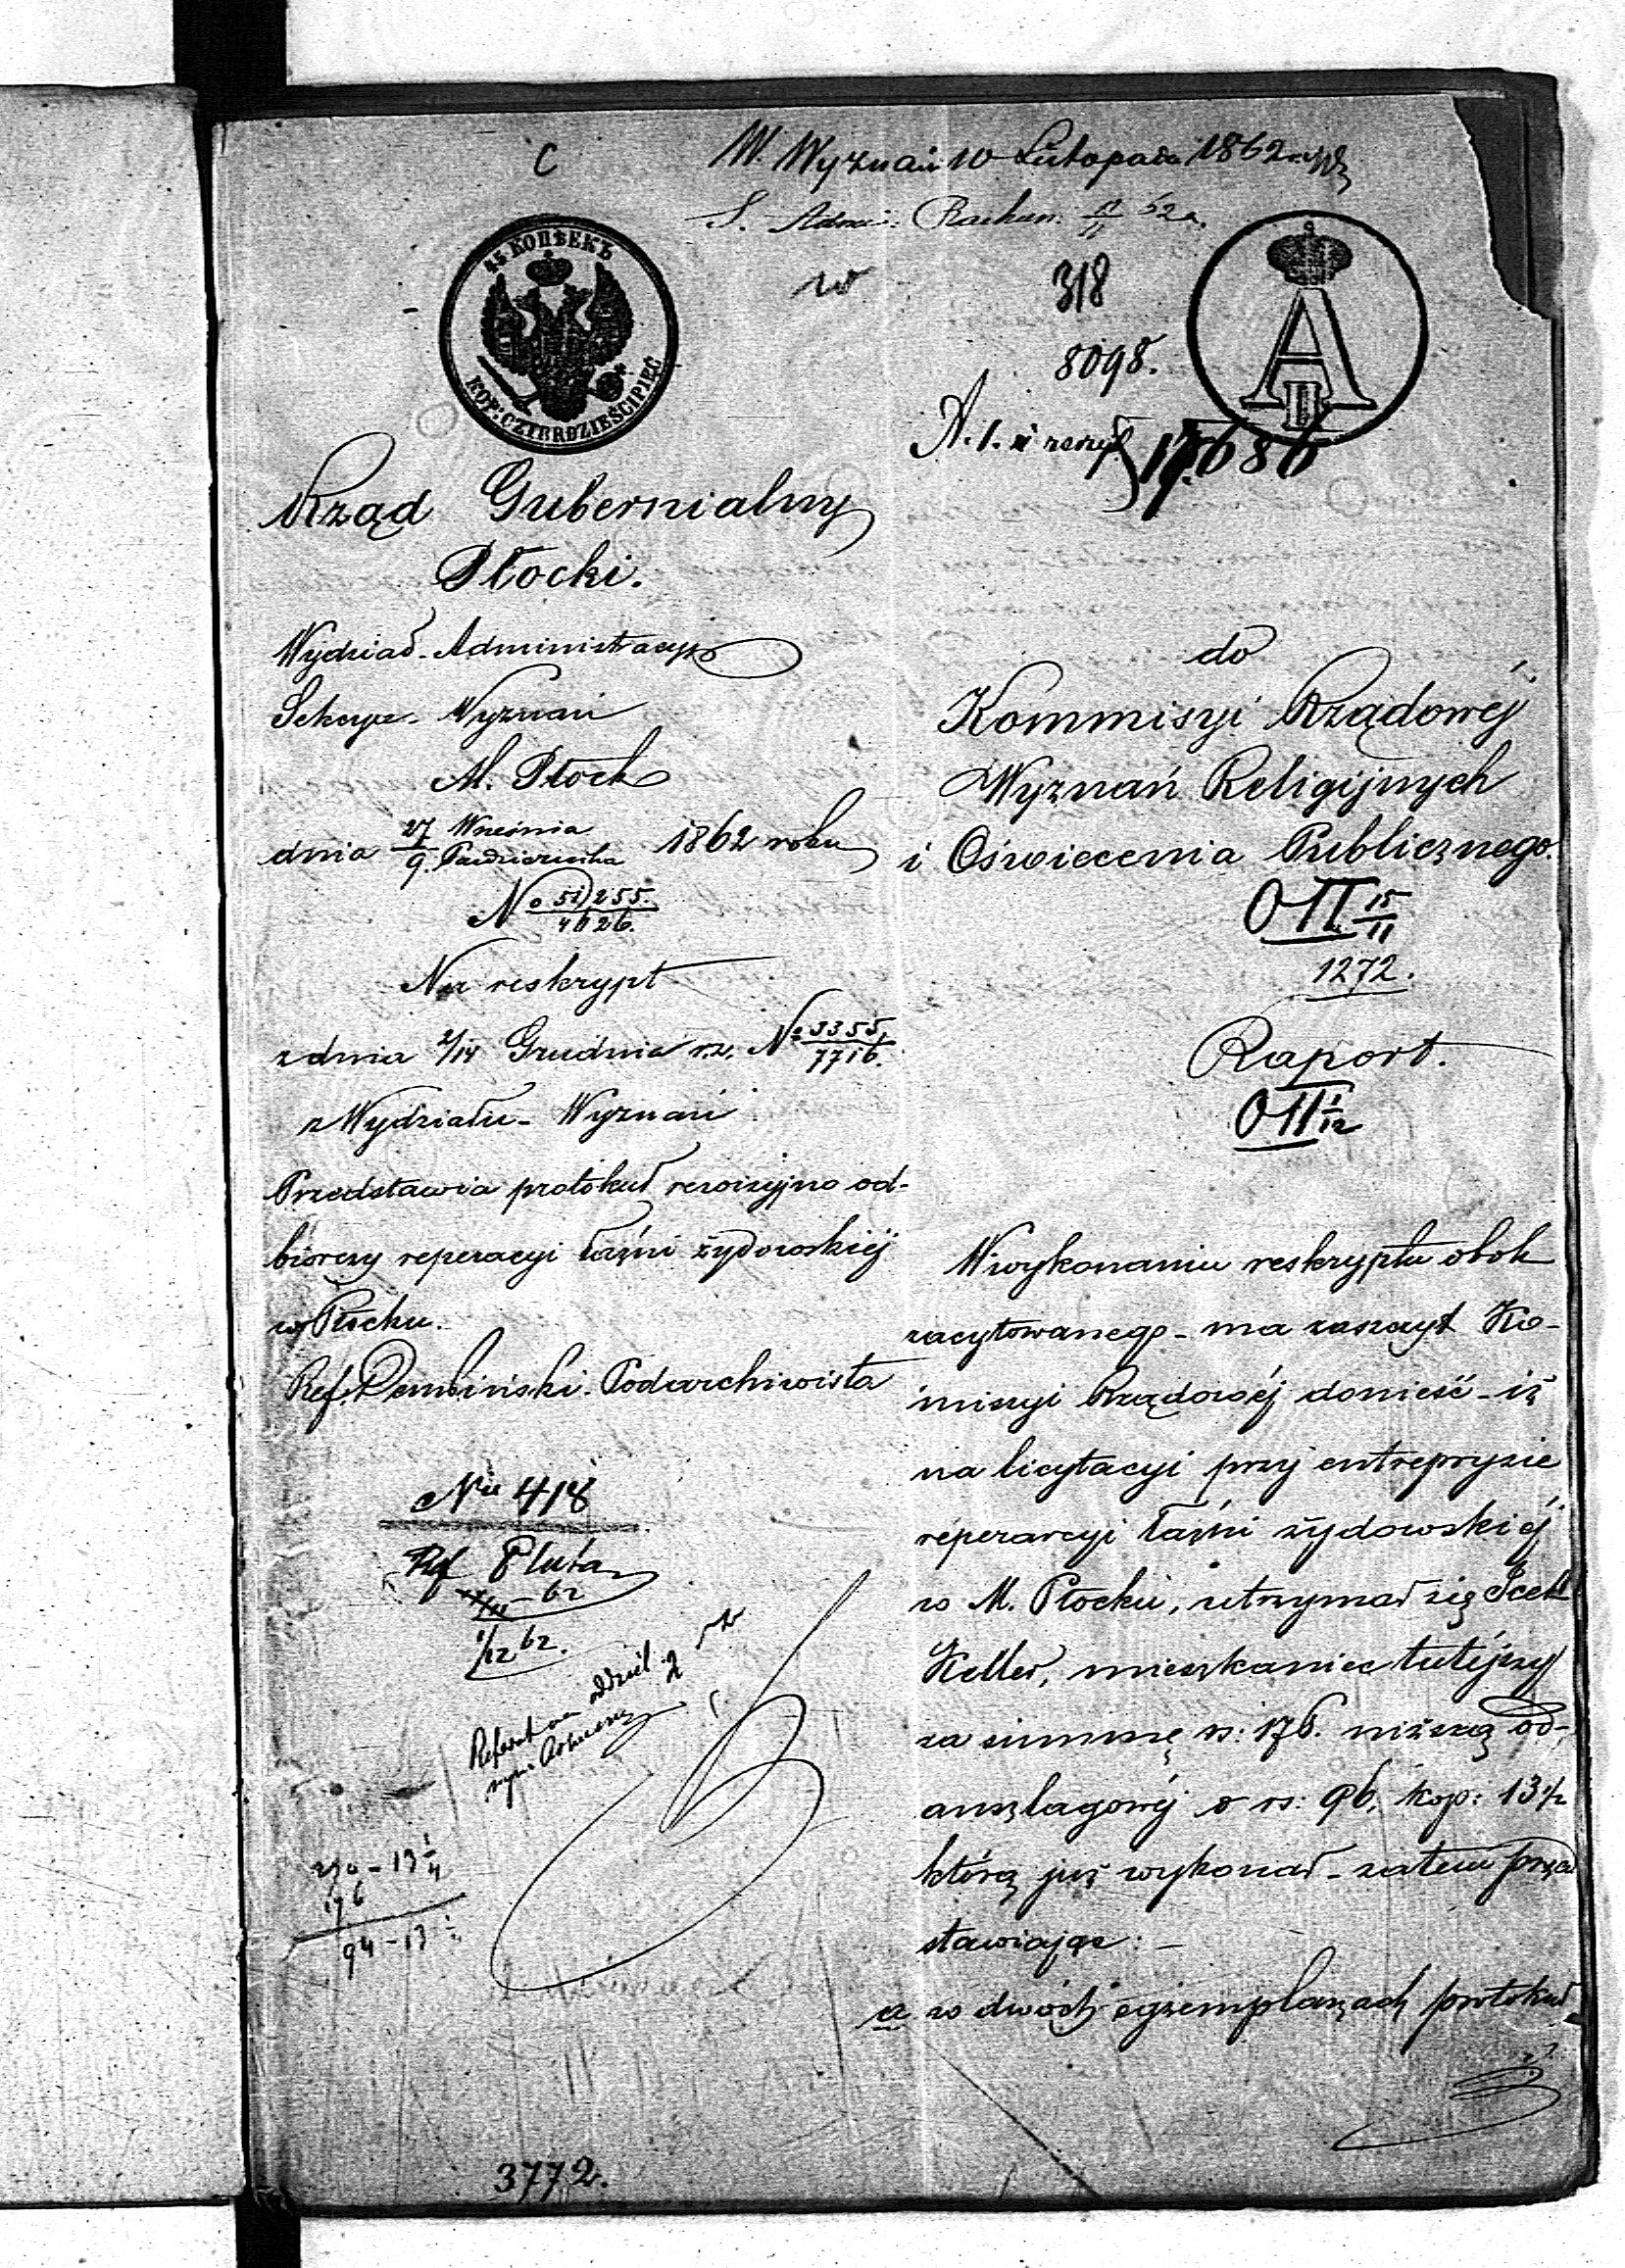 C
W. Wyznań 10 Listopada 1862
S. Adm: Rachun. 62
45 КОПѢЕКЪ
KOP: CZTERDZIEŚCI PIĘĆ
w
318
8098.
A
II
17686
Rząd Gubernialny
Płocki.
Wydział Administracyjny
Sekcya Wyznań
M. Płock
dnia 27 Września / 9 Października 1862 roku
No 51255 / 4026.
Na reskrypt
z dnia 2/14 Grudnia r.z. No 3355 / 7716.
z Wydziału Wyznań
Przedstawia protokuł rewizyjno od-
biorczy reperacyi łaźni żydowskiéj
w Płocku.
Ref. Dembiński. Podarchiwista
Nr 418
Ref Pluta
62
1/12 62.
Referent
176
94 - 13
3772.
do
Kommisyi Rządowéj
Wyznań Religijnych
i Oświecenia Publicznego.
O II 15/11
1272.
Raport.
O II 1/12
W wykonaniu reskryptu obok
zacytowanego - ma zaszczyt Ko-
misyi Rządowéj donieść - iż
na licytacyi przy entrepryzie
reperacyi łaźni żydowskiéj
w M. Płocku, utrzymał się Icek
Keller, mieszkaniec tutéjszy
za summę rs: 176. niższą od
anszlagowéj o rs: 96, kop: 13 1/2
którą już wykonał - zatem przed
stawiając: -
a w dwóch egzemplarzach protokuł